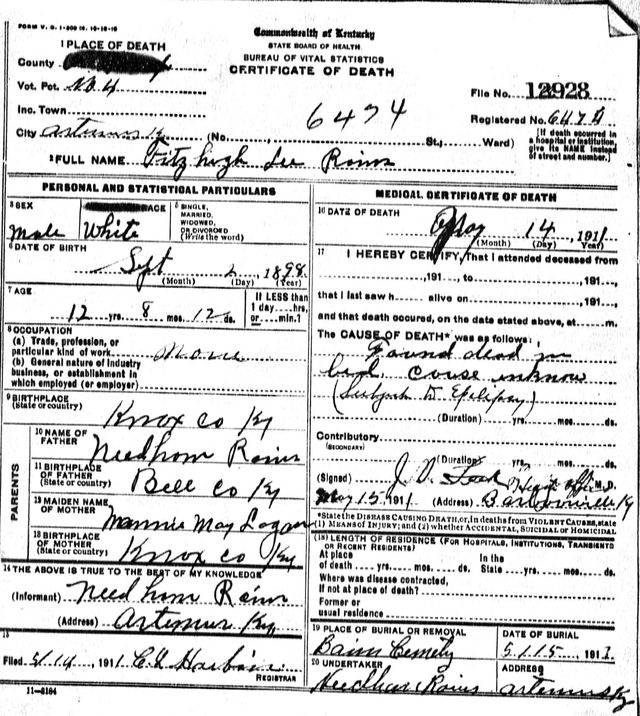 FORM V. S. 1-200 M. 10-16-10
Commonwealth of Kentucky
STATE BOARD OF HEALTH
BUREAU OF VITAL STATISTICS
CERTIFICATE OF DEATH
1 PLACE OF DEATH
County
Vot. Pct. No. 4
Inc. Town
City Artemus Ky (No. St., Ward)
6474
File No. 12928
Registered No. 647
[If death occurred in a hospital or institution, give its NAME instead of street and number.]
2 FULL NAME Fitzhugh Lee Rains
PERSONAL AND STATISTICAL PARTICULARS
3 SEX Male
RACE White
5 SINGLE, MARRIED, WIDOWED, OR DIVORCED (Write the word)
6 DATE OF BIRTH
Sept 2, 1898
(Month) (Day) (Year)
7 AGE
12 yrs. 8 mos. 12 ds.
If LESS than 1 day....hrs. or....min.?
8 OCCUPATION
(a) Trade, profession, or particular kind of work None
(b) General nature of industry business, or establishment in which employed (or employer)
9 BIRTHPLACE
(State or country) Knox co Ky
PARENTS
10 NAME OF FATHER Needham Rains
11 BIRTHPLACE OF FATHER
(State or country) Bell co Ky
12 MAIDEN NAME OF MOTHER Mannie May Logan
13 BIRTHPLACE OF MOTHER
(State or country) Knox co Ky
14 THE ABOVE IS TRUE TO THE BEST OF MY KNOWLEDGE
(Informant) Needham Rains
(Address) Artemus Ky
15
Filed 5/14, 1911
REGISTRAR
11-3184
MEDICAL CERTIFICATE OF DEATH
16 DATE OF DEATH
May 14, 1911
(Month) (Day) (Year)
17 I HEREBY CERTIFY, That I attended deceased from
,191..., to ,191...,
that I last saw h alive on ,191...,
and that death occured, on the date stated above, at m.
The CAUSE OF DEATH* was as follows:
Found dead in
bed. cause unknow
(Subject to Epilepsy)
(Duration) yrs. mos. ds.
Contributory
(SECONDARY)
(Duration) yrs. mos. ds.
(Signed) M.D.
May 15 1911 (Address) Barbourville Ky
*State the DISEASE CAUSING DEATH, or, in deaths from VIOLENT CAUSES, state
(1) MEANS OF INJURY; and (2) whether ACCIDENTAL, SUICIDAL or HOMICIDAL
(18) LENGTH OF RESIDENCE (FOR HOSPITALS, INSTITUTIONS, TRANSIENTS OR RECENT RESIDENTS)
At place of death yrs. mos. ds. In the State yrs. mos. ds.
Where was disease contracted, If not at place of death?
Former or usual residence
19 PLACE OF BURIAL OR REMOVAL
DATE OF BURIAL
5/15, 1911
20 UNDERTAKER
Needham Rains
ADDRESS
Artemus Ky